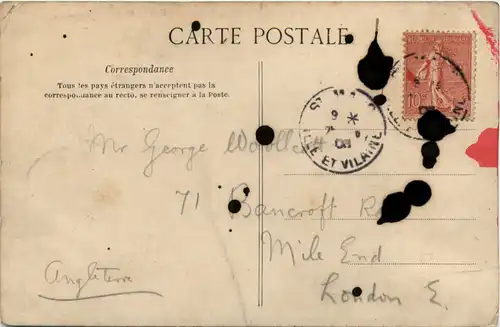 CARTE POSTALE
Correspondance
Tous les pays étrangers n'acceptent pas la
correspo..ance au recto. se renseigner à la Poste.
10
ILLE ET VILAINE
Mr George
71 Bancroft
Mile End
London E.
Angleterre